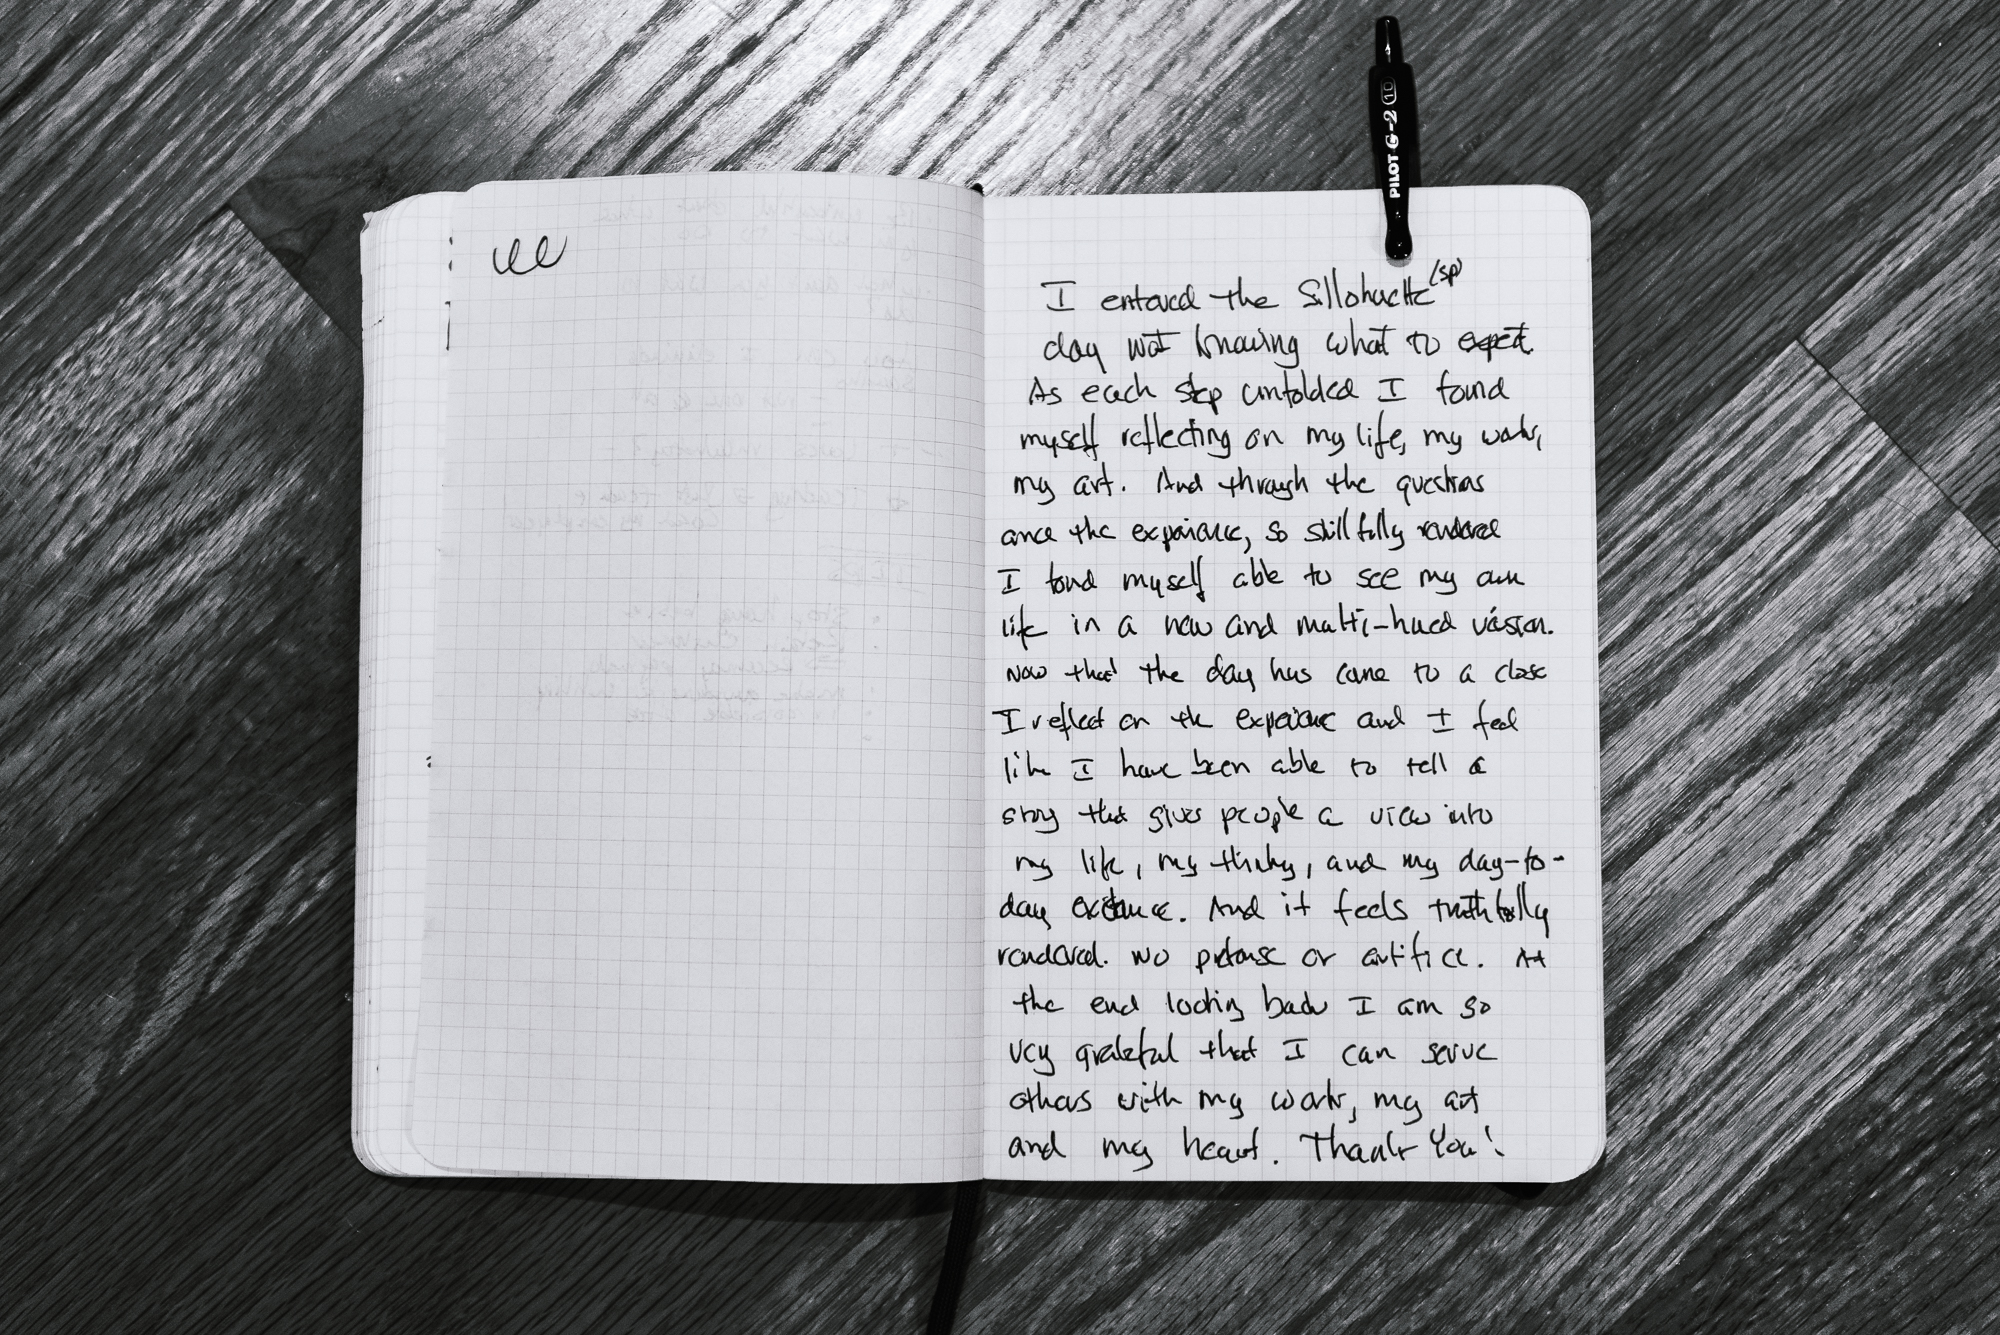 PILOT G-2 10
I entered the Sillohuette (sp)
day not knowing what to expect.
As each step unfolded I found
myself reflecting on my life, my work,
my art. And through the questions
and the experience, so skillfully rendered
I found myself able to see my own
life in a new and multi-hued vision.
Now that the day has come to a close
I reflect on the experience and I feel
like I have been able to tell a
story that gives people a view into
my life, my thinking, and my day-to-
day existence. And it feels truthfully
rendered. No pretense or artifice. At
the end looking back I am so
very grateful that I can serve
others with my work, my art
and my heart. Thank You!